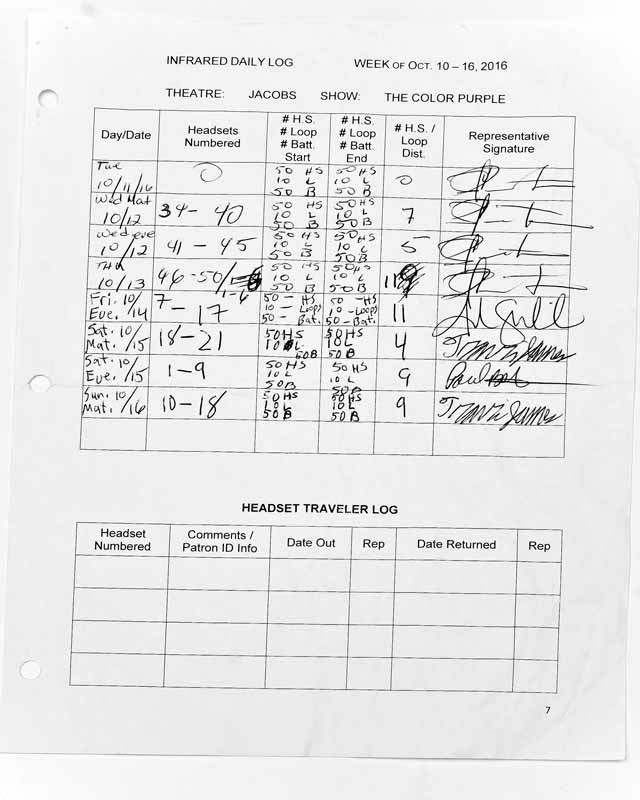 INFRARED DAILY LOG WEEK OF OCT. 10 – 16, 2016
THEATRE: JACOBS SHOW: THE COLOR PURPLE
Day/Date
Headsets
Numbered
# H.S.
# Loop
# Batt.
Start
# H.S.
# Loop
# Batt.
End
# H.S. /
Loop
Dist.
Representative
Signature
Tue
10/11/16
0
50 HS
10 L
50 B
50 HS
10 L
50 B
0
Wed Mat
10/12
34 – 40
50 HS
10 L
50 B
50 HS
10 L
50 B
7
Wed eve
10/12
41 – 45
50 HS
10 L
50 B
50 HS
10 L
50 B
5
Thu
10/13
46 – 50/1-6
50 HS
10 L
50 B
50 HS
10 L
50 B
11
Fri. 10/14
Eve.
7 – 17
50 – HS
10 – Loops
50 – Bat.
50 – HS
10 – Loops
50 – Bat.
11
Sat. 10/15
Mat.
18 – 21
50 HS
10 L
50B
50 HS
10 L
50 B
4
Travis James
Sat. 10/15
Eve.
1 – 9
50 HS
10 L
50 B
50 HS
10 L
50 B
9
Paul
Sun. 10/16
Mat.
10 – 18
50 HS
10 L
50 B
50 HS
10 L
50 B
9
Travis James
HEADSET TRAVELER LOG
Headset
Numbered
Comments /
Patron ID Info
Date Out
Rep
Date Returned
Rep
7